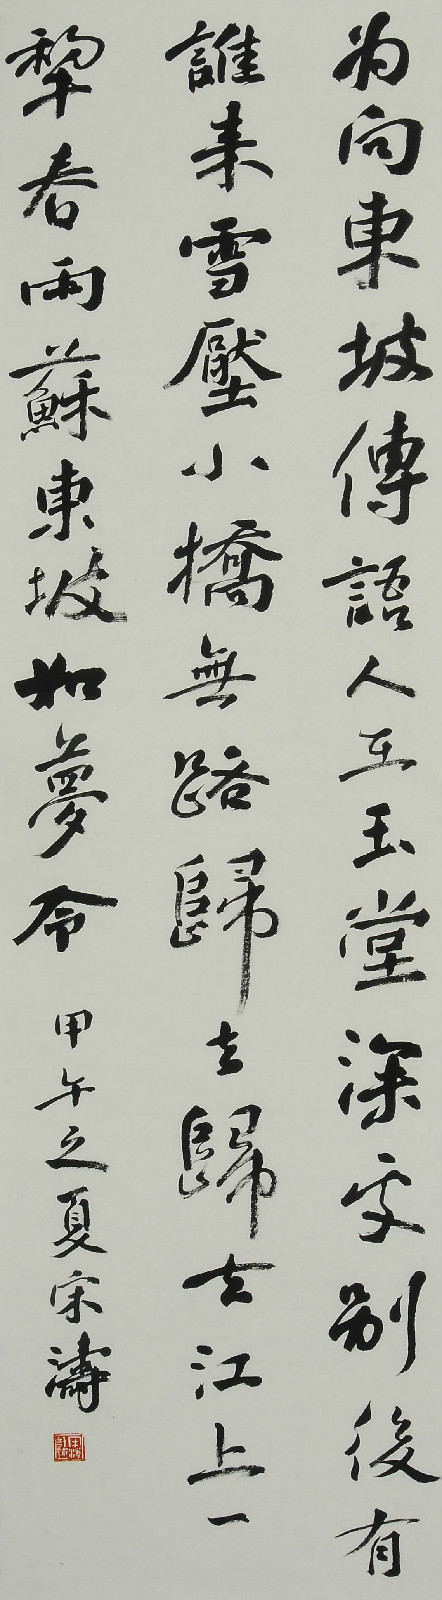 为向東坡傳語人在玉堂深处别後有
誰来雪壓小橋無路歸去歸去江上一
犂春雨蘇東坡如夢令
甲午之夏宋濤